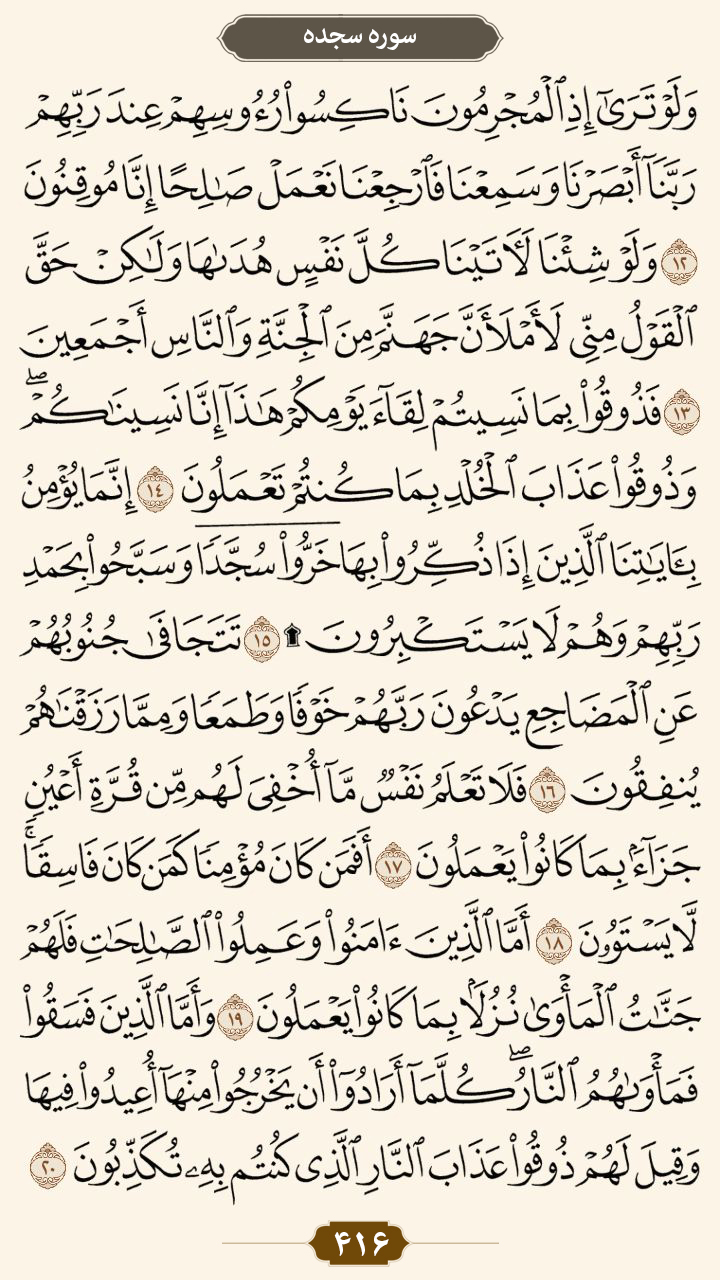 سوره سجده
وَلَوْ تَرَىٰٓ إِذِ ٱلْمُجْرِمُونَ نَاكِسُوا۟ رُءُوسِهِمْ عِندَ رَبِّهِمْ
رَبَّنَآ أَبْصَرْنَا وَسَمِعْنَا فَٱرْجِعْنَا نَعْمَلْ صَـٰلِحًا إِنَّا مُوقِنُونَ
١٢ وَلَوْ شِئْنَا لَـَٔاتَيْنَا كُلَّ نَفْسٍ هُدَىٰهَا وَلَـٰكِنْ حَقَّ
ٱلْقَوْلُ مِنِّى لَأَمْلَأَنَّ جَهَنَّمَ مِنَ ٱلْجِنَّةِ وَٱلنَّاسِ أَجْمَعِينَ
١٣ فَذُوقُوا۟ بِمَا نَسِيتُمْ لِقَآءَ يَوْمِكُمْ هَـٰذَآ إِنَّا نَسِينَـٰكُمْ ۖ
وَذُوقُوا۟ عَذَابَ ٱلْخُلْدِ بِمَا كُنتُمْ تَعْمَلُونَ ١٤ إِنَّمَا يُؤْمِنُ
بِـَٔايَـٰتِنَا ٱلَّذِينَ إِذَا ذُكِّرُوا۟ بِهَا خَرُّوا۟ سُجَّدًا وَسَبَّحُوا۟ بِحَمْدِ
رَبِّهِمْ وَهُمْ لَا يَسْتَكْبِرُونَ ۩ ١٥ تَتَجَافَىٰ جُنُوبُهُمْ
عَنِ ٱلْمَضَاجِعِ يَدْعُونَ رَبَّهُمْ خَوْفًا وَطَمَعًا وَمِمَّا رَزَقْنَـٰهُمْ
يُنفِقُونَ ١٦ فَلَا تَعْلَمُ نَفْسٌ مَّآ أُخْفِىَ لَهُم مِّن قُرَّةِ أَعْيُنٍ
جَزَآءًۢ بِمَا كَانُوا۟ يَعْمَلُونَ ١٧ أَفَمَن كَانَ مُؤْمِنًا كَمَن كَانَ فَاسِقًا ۚ
لَّا يَسْتَوُۥنَ ١٨ أَمَّا ٱلَّذِينَ ءَامَنُوا۟ وَعَمِلُوا۟ ٱلصَّـٰلِحَـٰتِ فَلَهُمْ
جَنَّـٰتُ ٱلْمَأْوَىٰ نُزُلًۢا بِمَا كَانُوا۟ يَعْمَلُونَ ١٩ وَأَمَّا ٱلَّذِينَ فَسَقُوا۟
فَمَأْوَىٰهُمُ ٱلنَّارُ ۖ كُلَّمَآ أَرَادُوٓا۟ أَن يَخْرُجُوا۟ مِنْهَآ أُعِيدُوا۟ فِيهَا
وَقِيلَ لَهُمْ ذُوقُوا۟ عَذَابَ ٱلنَّارِ ٱلَّذِى كُنتُم بِهِۦ تُكَذِّبُونَ ٢٠
۴۱۶